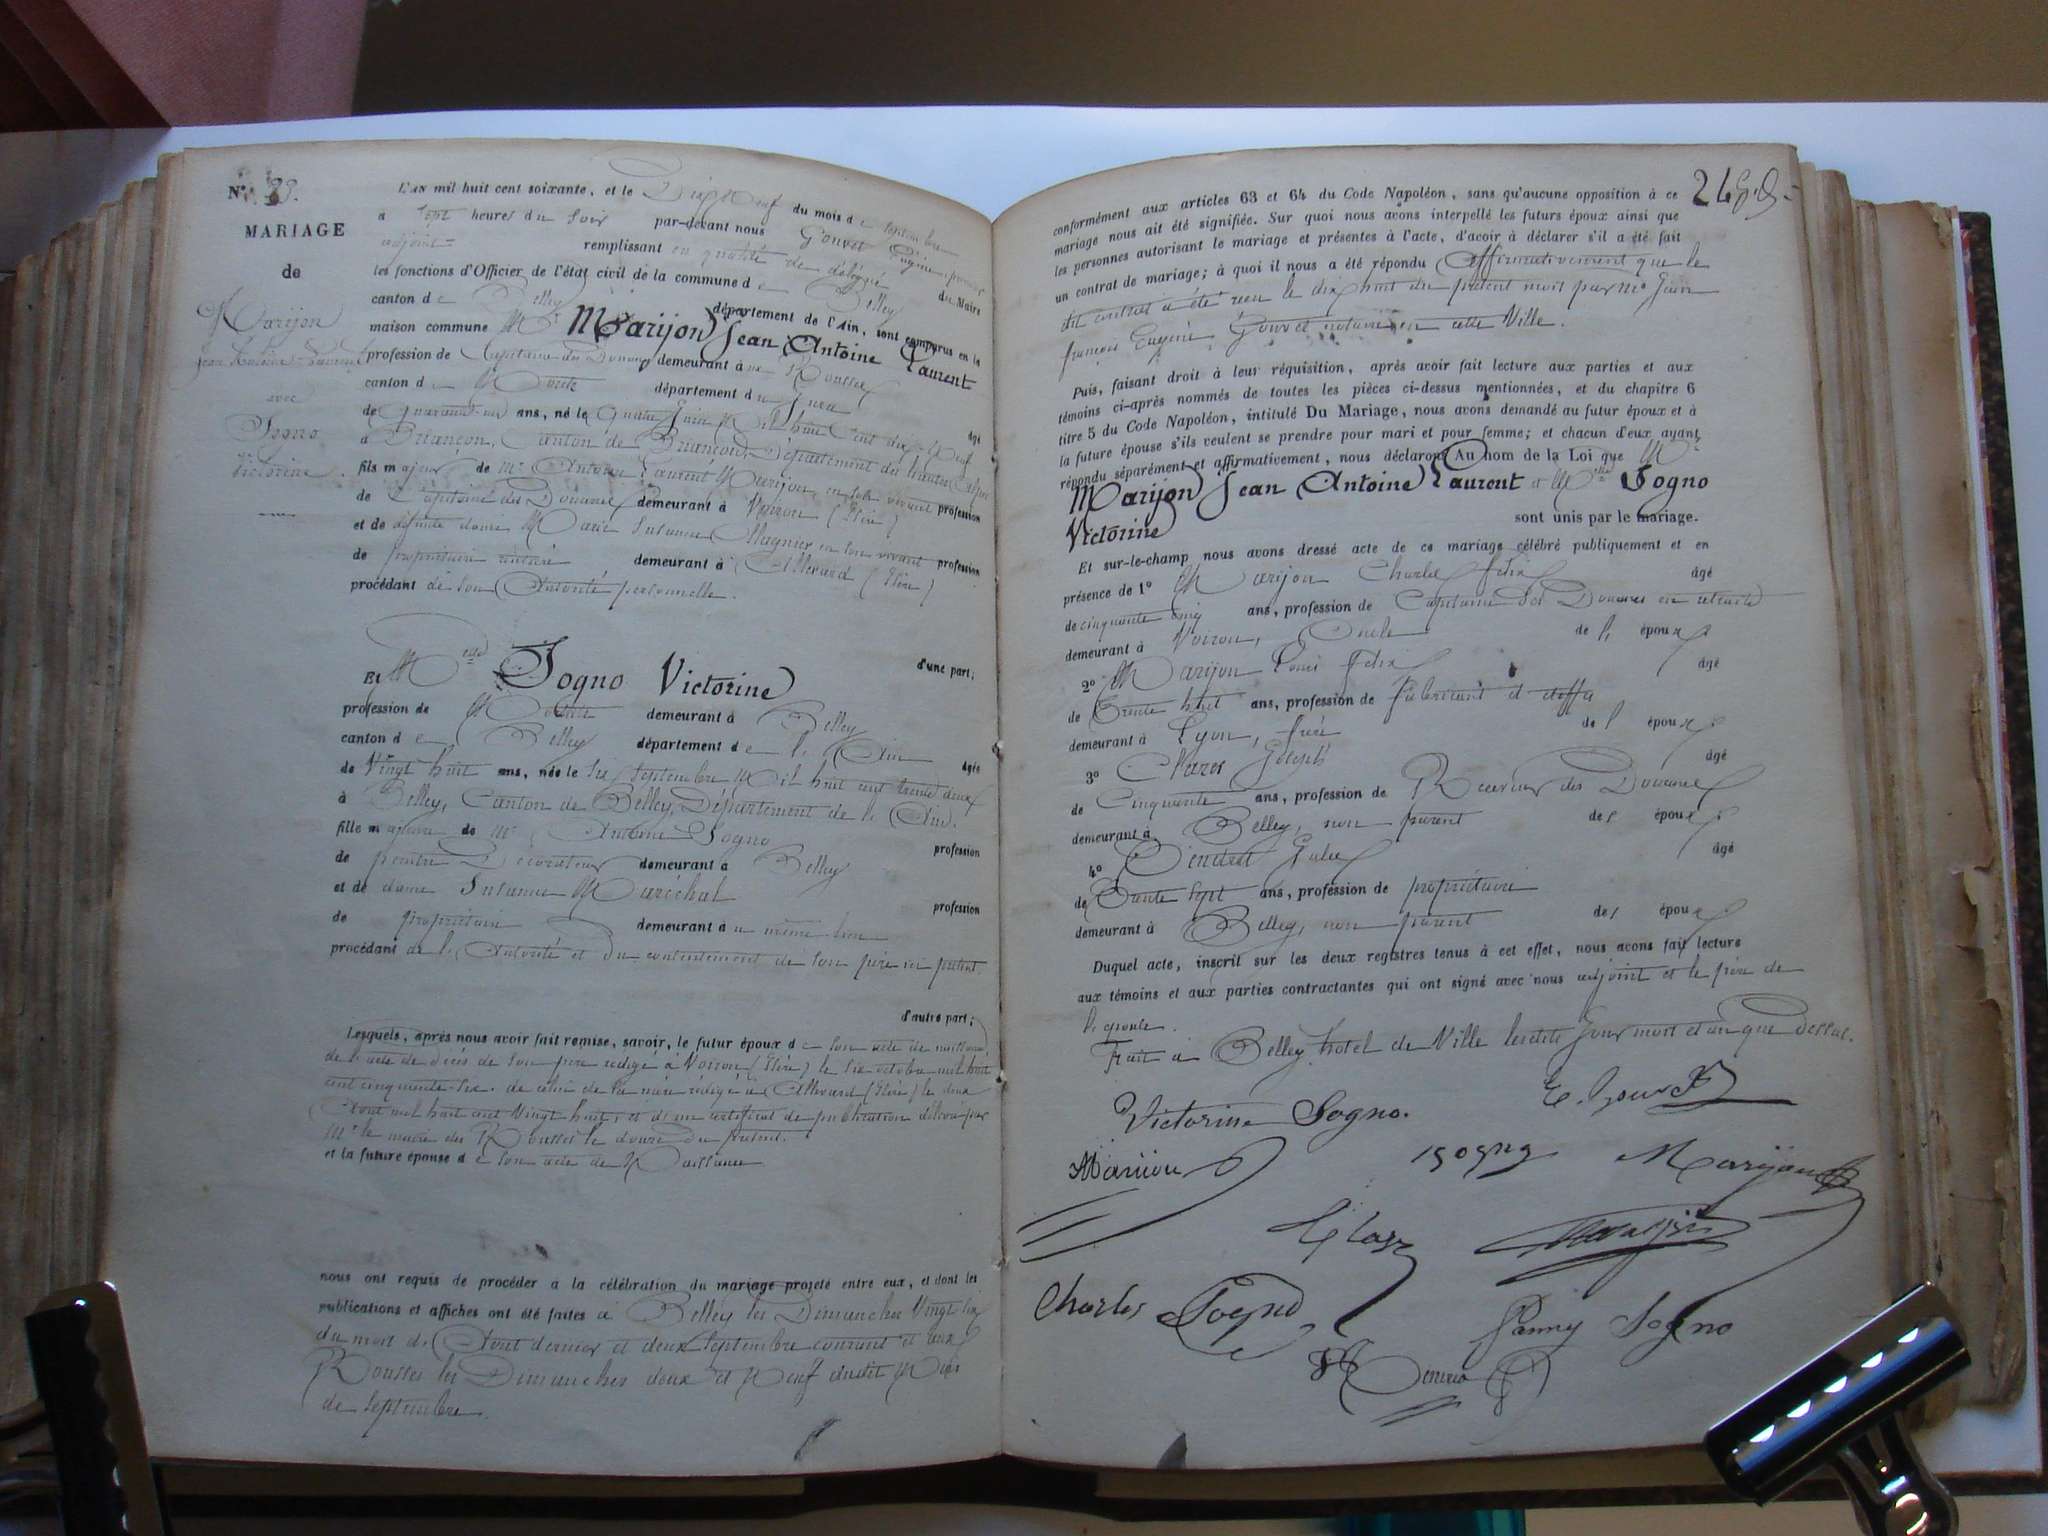 N° 23.
MARIAGE
de
Marijon
Jean Antoine Laurent
avec
Sogno
Victorine
L'AN mil huit cent soixante, et le Dix Neuf du mois de septembre
à sept heures du soir par-devant nous Gouvet Eugène, premier
adjoint remplissant en qualité de délégué du Maire
les fonctions d'Officier de l'état civil de la commune de Belley
canton de Belley département de l'Ain, sont comparus en la
maison commune Mr Marijon Jean Antoine Laurent
profession de Capitaine des Douanes demeurant à aux Rousses
canton de Morez département du Jura
âgé
de quarante-un ans, né le quatre Juin Mil huit Cent dix-Neuf
à Briançon, Canton de Briançon, Département des hautes Alpes
fils majeur de Mr Antoine Laurent Marijon, en son vivant profession
de Capitaine des Douanes demeurant à Voiron (Isère)
et de défunte dame Marie Susanne Magnier en son vivant profession
de propriétaire rentière demeurant à Allevard (Isère)
procédant de son Autorité personnelle.
d'une part;
Et Melle Sogno Victorine
profession de demeurant à Belley
canton de Belley département de l'Ain
âgée
de Vingt huit ans, née le six septembre Mil huit cent trente deux
à Belley, Canton de Belley, Département de l'Ain.
fille majeure de Mr Antoine Sogno
profession
de peintre Décorateur demeurant à Belley
et de dame Susanne Maréchal
profession
de propriétaire demeurant à u même lieu
procédant de l'Autorité et du consentement de son père ici présent.
d'autre part;
Lesquels, après nous avoir fait remise, savoir, le futur époux de son acte de naissance,
de l'acte de décès de son père rédigé à Voiron (Isère) le six octobre mil huit
cent cinquante-six. de celui de sa mère rédigé à Allevard (Isère) le deux
Aout mil huit cent Vingt huit; et d'un certificat de publication délivré par
Mr le maire des Rousses le douze du présent.
et la future épouse de son acte de Naissance
nous ont requis de procéder à la célébration du mariage projeté entre eux, et dont les
publications et affiches ont été faites à Belley les Dimanches Vingt six
du mois d'Aout dernier et deux septembre courant et aux
Rousses les Dimanches deux et Neuf dudit Mois
de septembre.
24
conformément aux articles 63 et 64 du Code Napoléon, sans qu'aucune opposition à ce
mariage nous ait été signifiée. Sur quoi nous avons interpellé les futurs époux ainsi que
les personnes autorisant le mariage et présentes à l'acte, d'avoir à déclarer s'il a été fait
un contrat de mariage; à quoi il nous a été répondu affirmativement que le
dit contrat a été reçu le dix huit du présent mois par Me Jean
françois Eugène Gouvet notaire en cette Ville.
Puis, faisant droit à leur réquisition, après avoir fait lecture aux parties et aux
témoins ci-après nommés de toutes les pièces ci-dessus mentionnées, et du chapitre 6
titre 5 du Code Napoléon, intitulé Du Mariage, nous avons demandé au futur époux et à
la future épouse s'ils veulent se prendre pour mari et pour femme; et chacun d'eux ayant
répondu séparément et affirmativement, nous déclarons Au nom de la Loi que Mr
Marijon Jean Antoine Laurent et Melle Sogno
Victorine sont unis par le mariage.
Et sur-le-champ nous avons dressé acte de ce mariage célébré publiquement et en
présence de 1° Marijon Charles felix âgé
de cinquante cinq ans, profession de Capitaine des Douanes en retraite
demeurant à Voiron, Oncle de l'époux
2° Marijon Louis felix âgé
de Trente huit ans, profession de fabricant d'étoffes
demeurant à Lyon, frère de l'époux
3° Joseph âgé
de Cinquante ans, profession de Receveur des Douanes
demeurant à Belley, non parent des époux
4° Jules âgé
de Trente sept ans, profession de propriétaire
demeurant à Belley, non parent des époux
Duquel acte, inscrit sur les deux registres tenus à cet effet, nous avons fait lecture
aux témoins et aux parties contractantes qui ont signé avec nous adjoint et le père de
l'épouse.
Fait à Belley hôtel de Ville les dits Jour mois et an que dessus.
Victorine Sogno. E. Gouvet
Marijon Sogno Marijon
Marijon
Charles Sogno Fanny Sogno